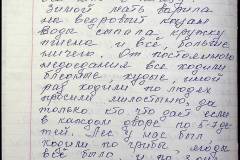 Зимой мать варила
ма ведровый казан
воды сыпала кружку
пшена и всё, больше
ничего. От постоянного
недоедания все ходили
опухшие, худые, иной
раз ходили по людях
просили милостыню, да
только кто что даёт если
в каждом дворе по 5-7 де-
тей. Лес у нас был
ходили по грибы, ягоды
всё было и по